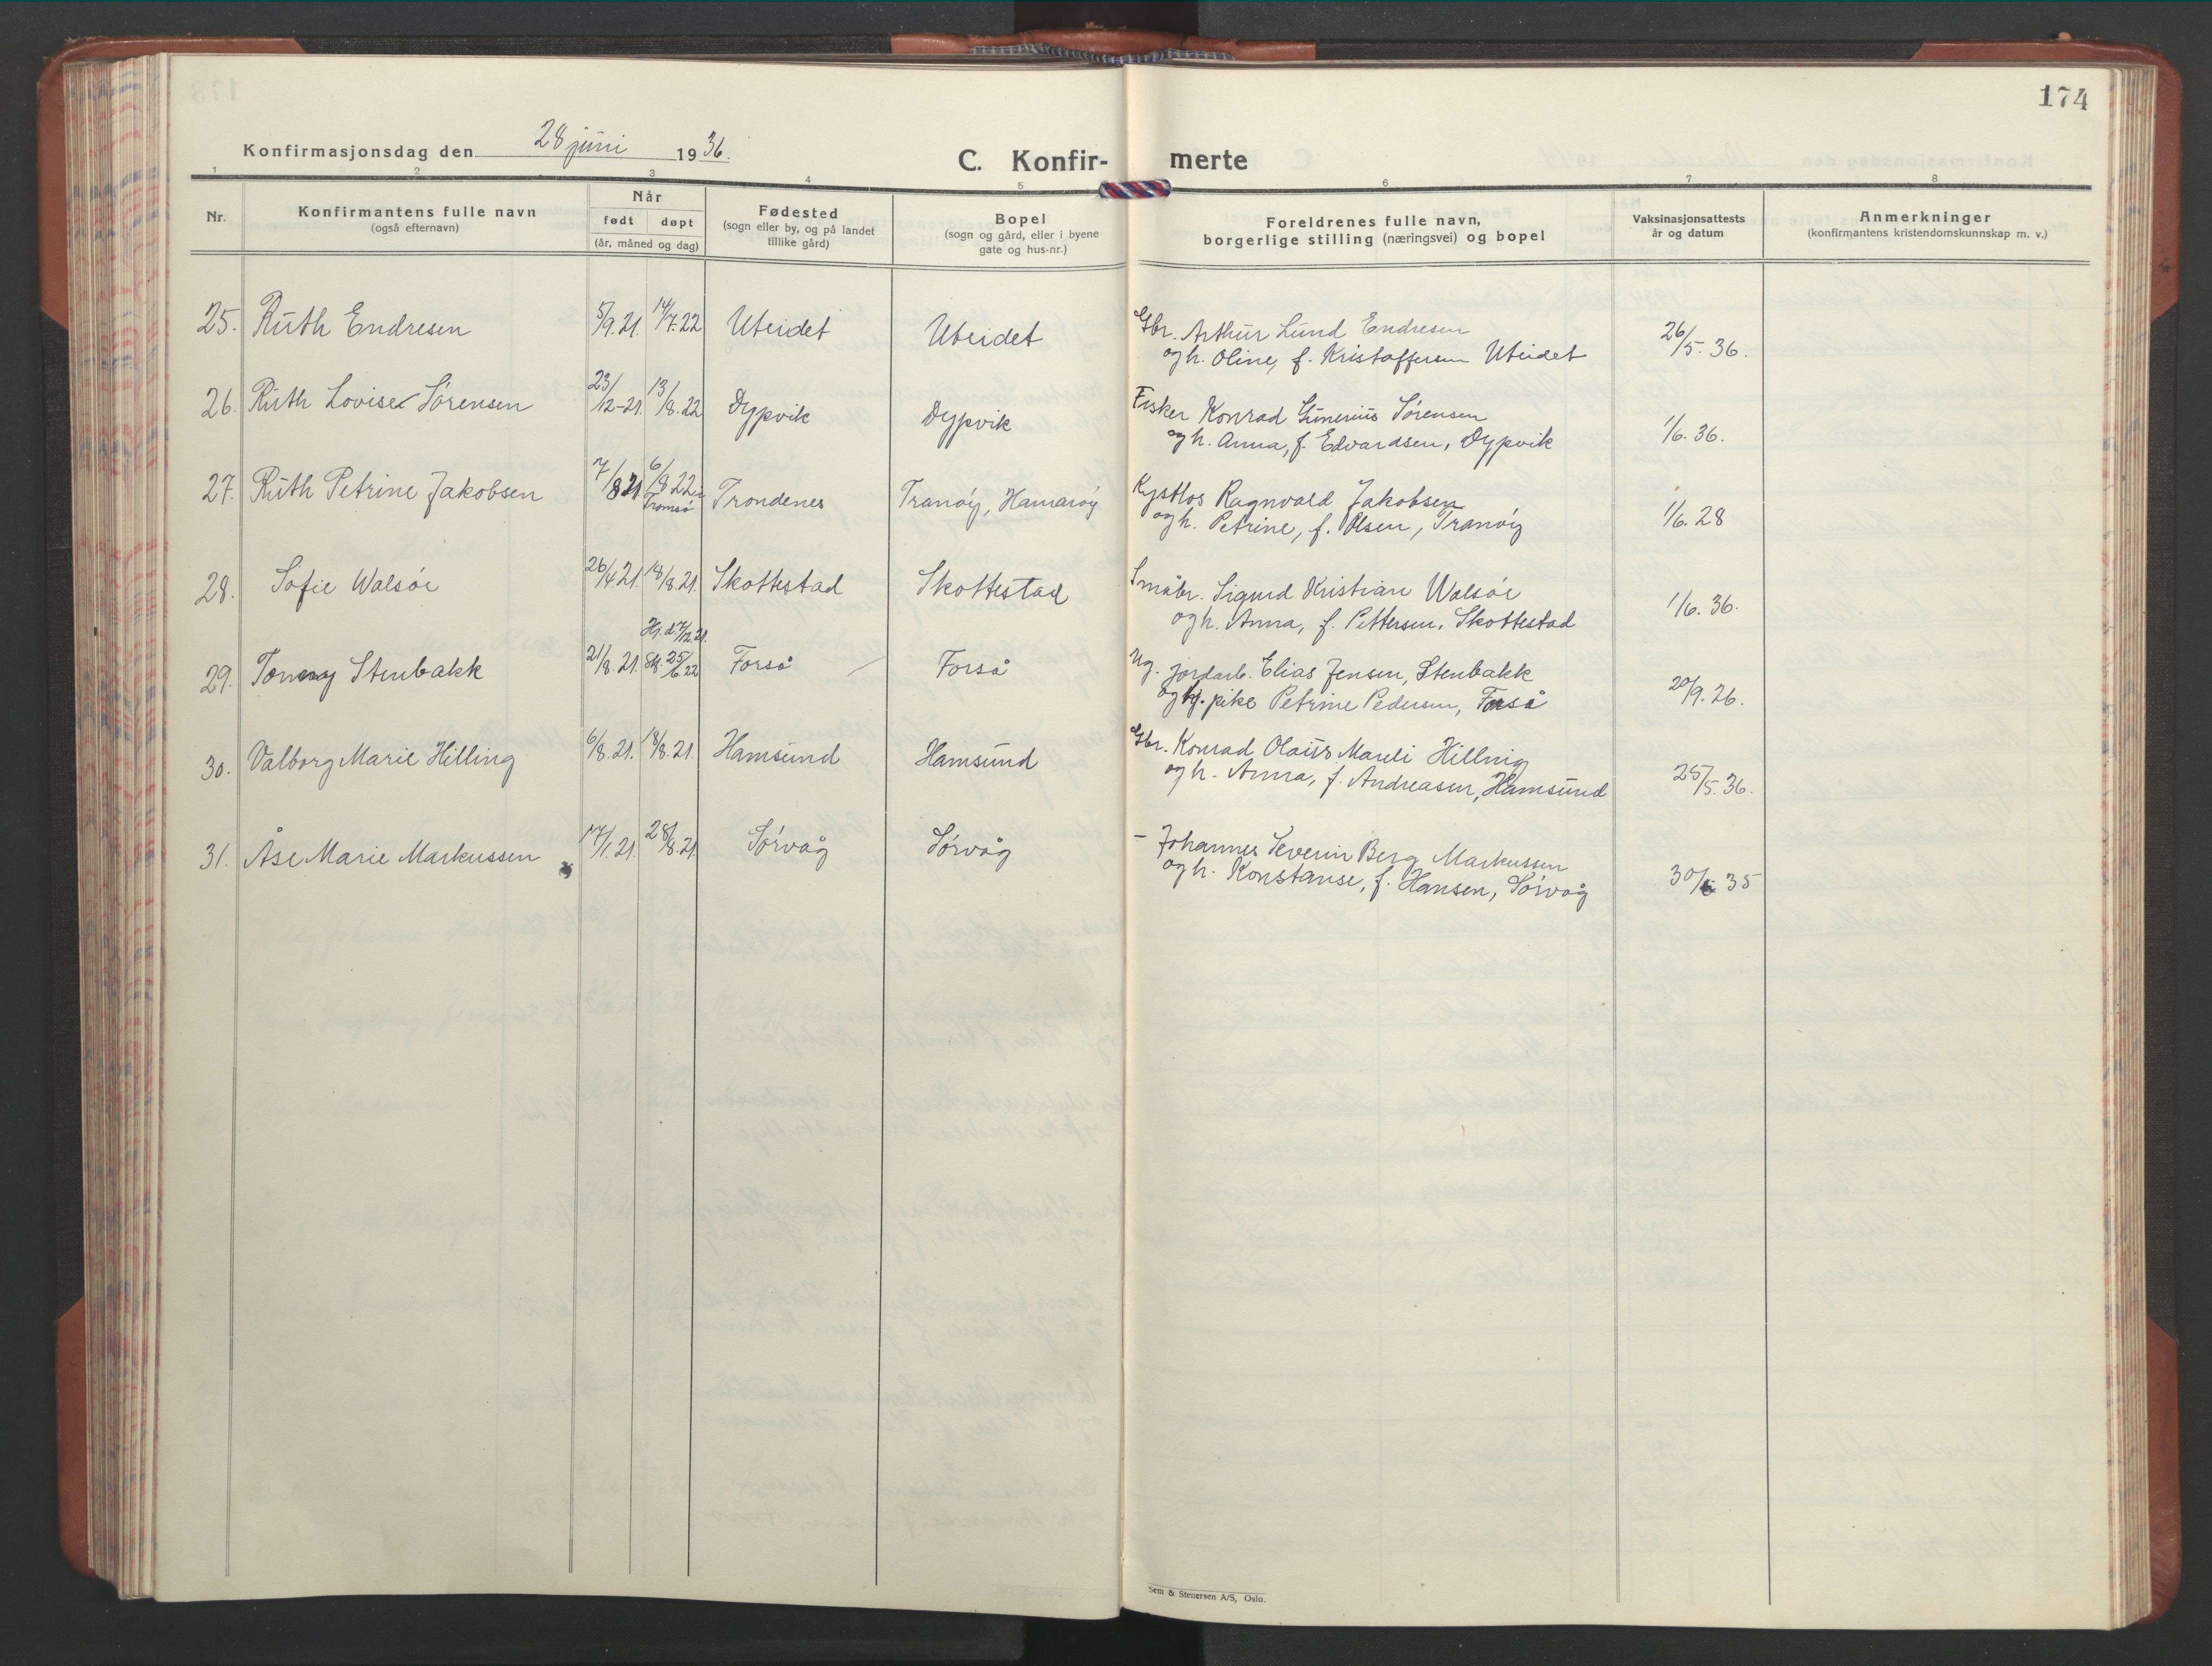 174
Konfirmasjonsdag den 28 juni 1936.
C. Konfir- merte
1 2 3 4 5 6 7 8
Nr.
Konfirmantens fulle navn
(også efternavn)
Når
født døpt
(år, måned og dag)
Fødested
(sogn eller by, og på landet
tillike gård)
Bopel
(sogn og gård, eller i byene
gate og hus-nr.)
Foreldrenes fulle navn,
borgerlige stilling (næringsvei) og bopel
Vaksinasjonsattests
år og datum
Anmerkninger
(konfirmantens kristendomskunnskap m. v.)
25. Ruth Endresen 5/9.21. 14/7.22 Uteidet Uteidet Gbr. Arthur Lund Endresen 26/5.36.
og h. Oline, f. Kristoffersen Uteidet
26. Ruth Lovise Sørensen 23/12-21. 13/8.22 Dypvik Dypvik Fisker Konrad Gunerius Sørensen 1/6.36.
og h. Anna, f. Edvardsen, Dypvik
27. Ruth Petrine Jakobsen 7/8 21 6/8 22 i Tromsø Trondenes Tranøy, Hamarøy Kystlos Ragnvald Jakobsen 1/6.28
og h. Petrine, f. Olsen, Tranøy
28. Sofie Walsøe 26/4.21. 18/8.21. Skottestad Skottestad Småbr. Sigurd Kristian Walsøe 1/6.36.
og h. Anna, f. Pettersen, Skottestad
Hj.d. 7/12.21.
29. Tonny Stenbakk 21/8.21. St. 25/6 22 Forså Forså Ug. jordarb. Elias Jensen, Stenbakk 20/9.26.
og hj. pike Petrine Pedersen, Forså
30. Valborg Marie Hilling 6/8.21. 18/8.21. Hamsund Hamsund Gbr. Konrad Olaus Mareli Hilling 25/5.36.
og h. Anna, f. Andreasen, Hamsund
31. Åse Marie Markussen 17/1.21. 28/8.21. Sørvåg Sørvåg – Johannes Severin Berg Markussen 30/5 35
og h. Konstanse, f. Hansen, Sørvåg
Sem & Stenersen A/S, Oslo.